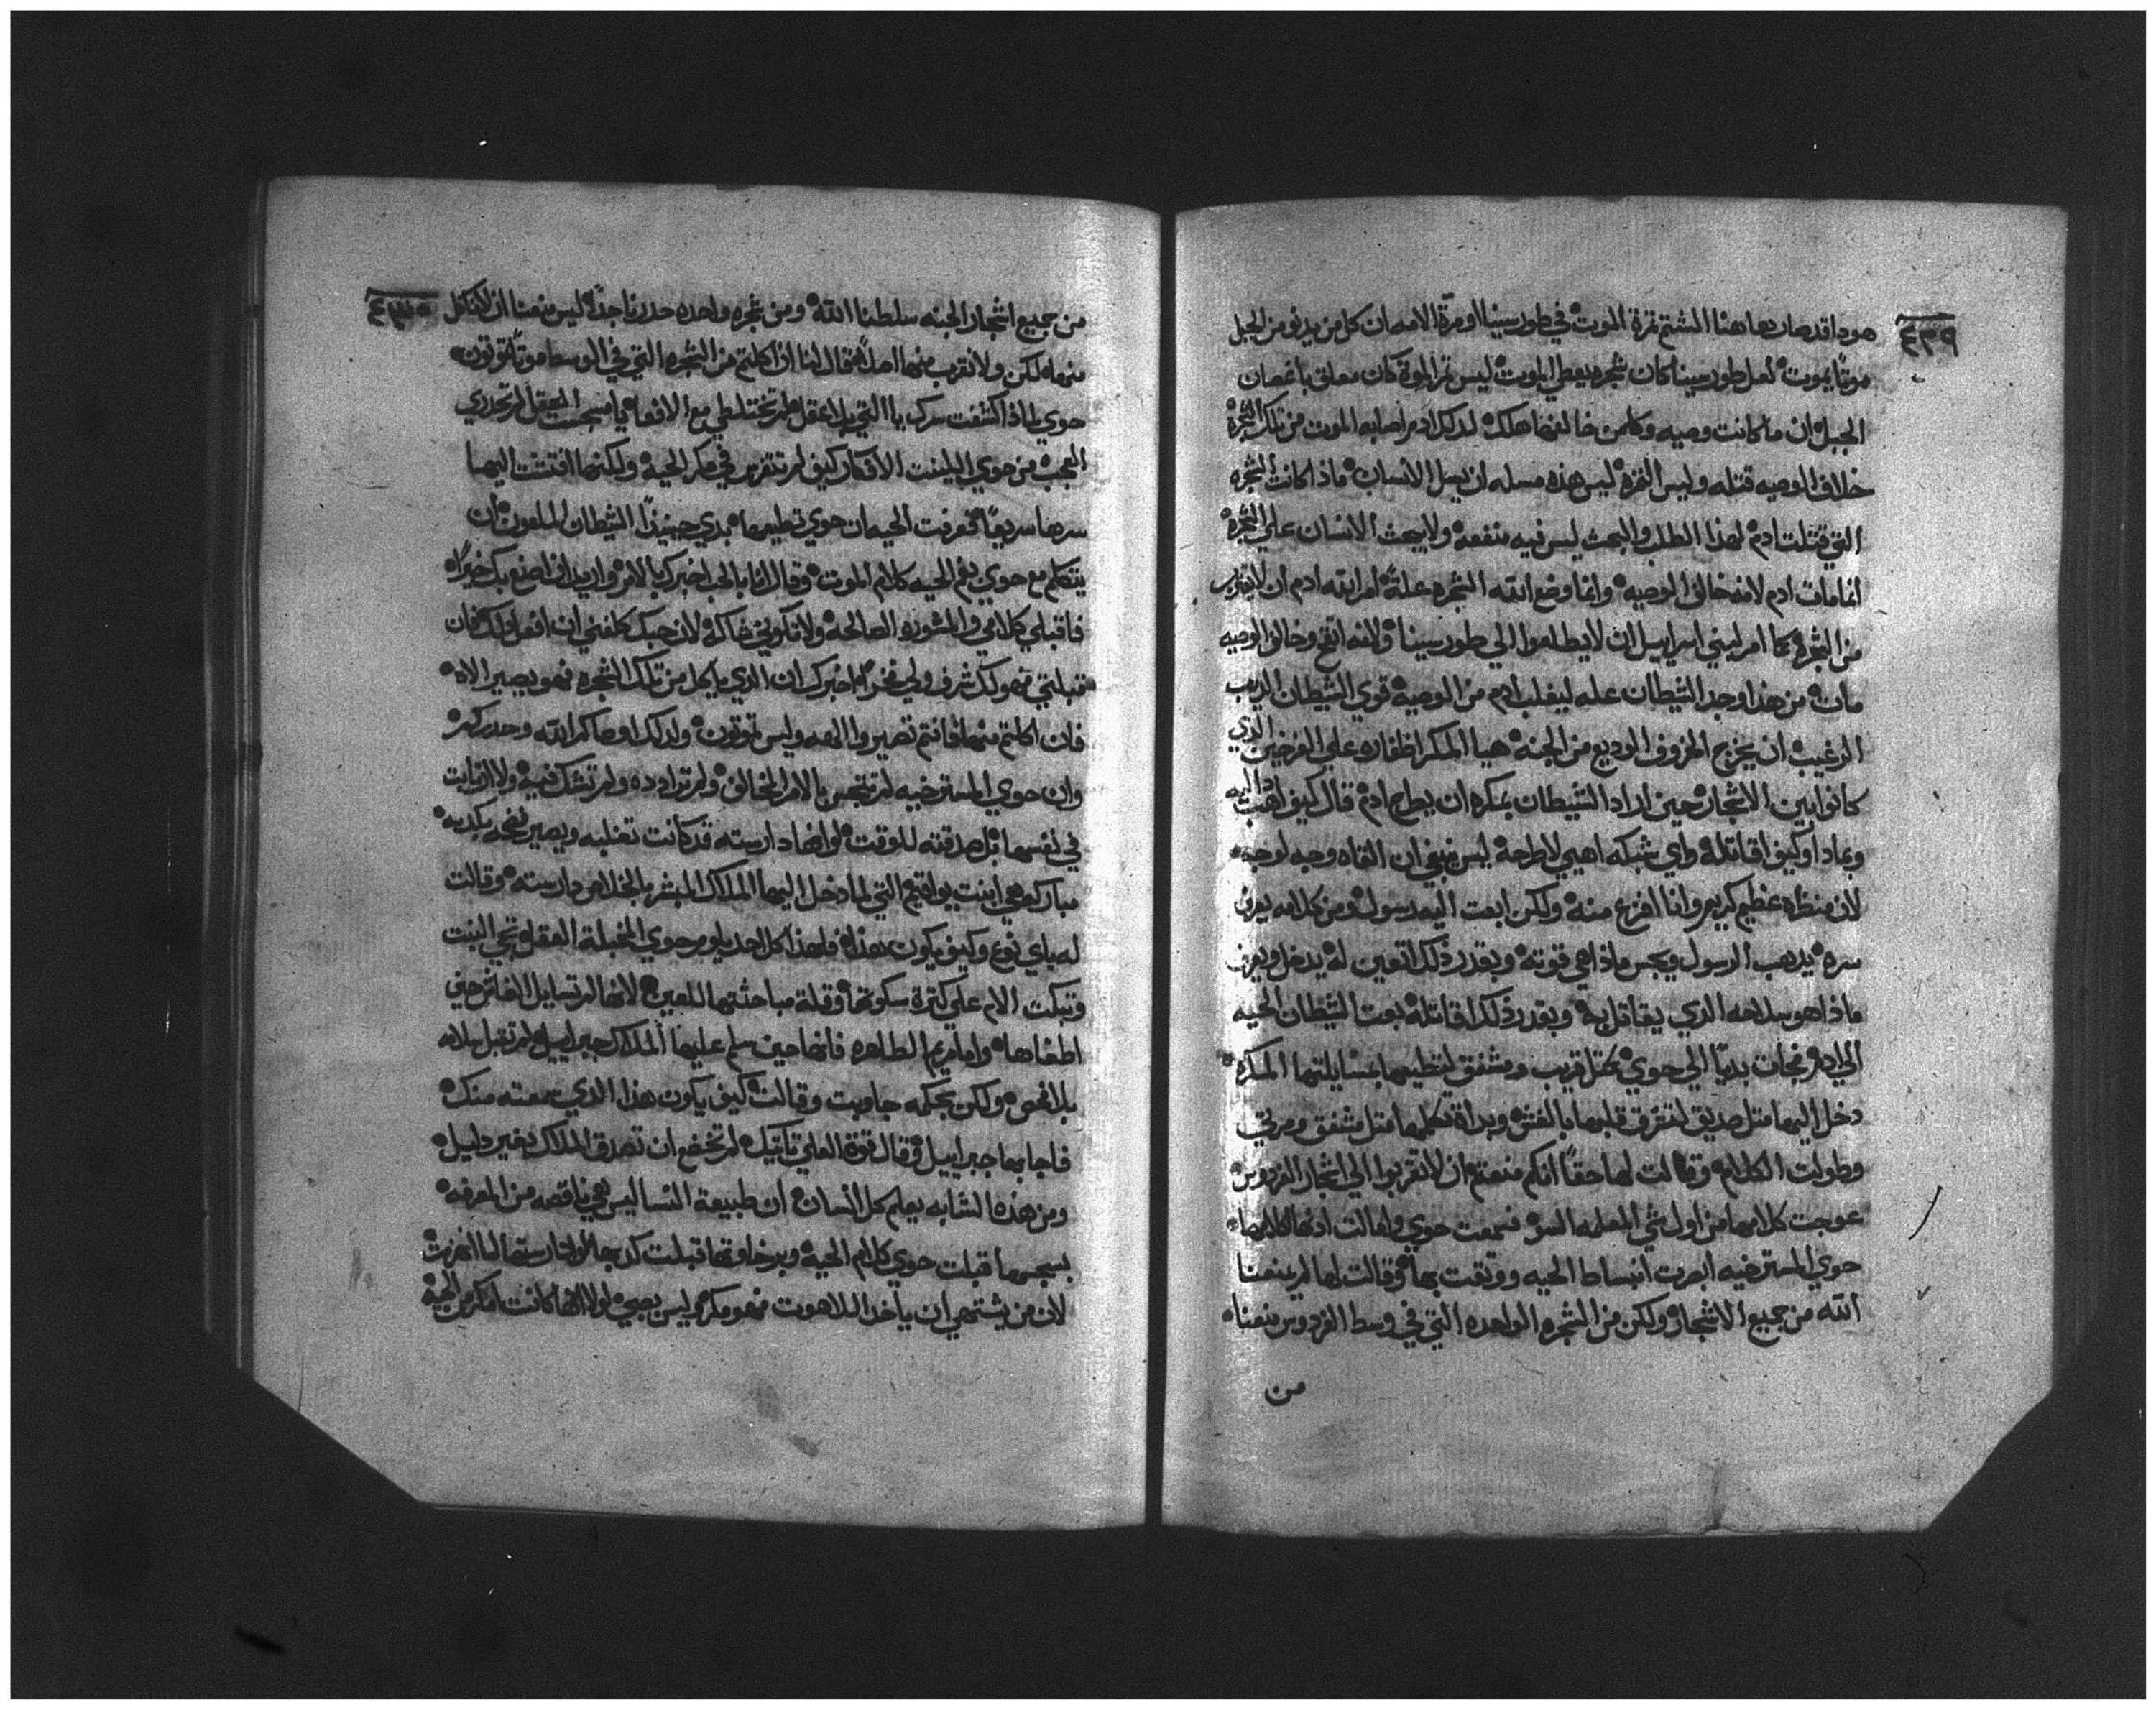 ٤٢٩
هوذا قد صار دعا هنا المشتم ثمرة الموت في طور سينا اومرة الامه ان كل من يدنو من الجبل
موتًا يموت لعل طور سينا كان شجره يعطي الموت ليس ثمر الموت كان معلق باغصان
الجبل ان ما كانت وصيه وكلمن خالفها هلك لدلك ادم اصابه الموت من تلك الشجرة
خلاف الوصيه قتله وليس الثمره ليس هذه مسله ان يسل الانسان ماذا كانت الشجره
التي قتلت ادم لهذا الطلب والبحث ليس فيه منفعه ولا يبحث الانسان علي الشجرة
انما مات ادم لانه خالف الوصيه وانما وضع الله الشجره علةً امر الله ادم ان لا يقترب
من الشجرة كما امر لبني اسراييل ان لا يطلعوا الي طور سينا ولانه اتقح وخالف الوصيه
مات من هذا وجد الشيطان عله ليغلب ادم من الوصيه قوي الشيطان الديب
الرغيب ان يخرج الخروف الوديع من الجنه هيا المكر اظفاره علي الفرخين الذي
كانوا بين الاشجار حين اراد الشيطان بمكره ان يطرح ادم قال كيف اهبت اليه
وبماذا وكيف اقاتله واي شبكه اهيي لاطرحه ليس ينبغي ان القاه وجه لوجه
لان منظره عظيم كريم وانا افزع منه ولكن ابعت اليه رسول ومن كلامه يعرف
سره يدهب الرسول ويجس ماذا هي قوته وبقدر ذلك اتعين له يدخل ويعرف
ماذا هو سلاحه الدي يقاتل به وبقدر ذلك اقاتله بعت الشيطان الحيه
الي ادم فجات بديًا الي حوي كمثل قريب ومشفق لتخطيها بمسايلتها المكره
دخل اليها متل صديق لتسرق قلبها بالغش وبداة تكلمها متل مشفق ومرتي
وطولت الكلام وقالت لها حقًا انكم منعتم ان لا تقربوا الي اشجار الفردوس
عوجت كلامها من اول شي المعلمه السو فسمعت حوي وامالت ادنها لكلامها
حوي المسترخيه ابصرت انبساط الحيه ووتقت بها وقالت لها لم يمنعنا
الله من جميع الاشجار ولكن من الشجره الواحده التي في وسط الفردوس منعنا
من
٤٣٠
من جميع اشجار الجنه سلطنا الله ومن شجره واحده حدرنا جدًا ليس منعنا ان لا ناكل
منها لكن ولا نقرب منها اصلاً فقال لنا ان اكلتم من الشجره التي في الوسط موتًا تموتون
حوي لماذا كشفت سرك يا التي بلا عقل لم تختلطي مع الافعا يا مسجت العقل لم تحدري
العجب من حوي البلينت الافكار كيف لم تتفرس في مكر الحيه ولكنها افتتنت اليها
سرها سريعًا فعرفت الحيه ان حوي تطيعها بدي حينيذًا الشيطان الملعون ان
يتكلم مع حوي بفم الحيه كلام الموت وقال انا بالحب اخبرك بالامر واريد ان اصنع بك خيرًا
فاقبلي كلامي والمشوره الصالحه ولا تكوني شاكه لان حبك كلفني ان افعل ذلك فان
قبلتي فهو لك شرف ولي فخرًا اخبرك ان الدي ياكل من تلك الشجره فهو يصير الاه
فان اكلتم منها فانتم تصيروا الهه وليس تموتون ولدلك اوصاكم الله وحدركم
وان حوي المسترخيه لم تنجس بالامر المخالف ولم تراددده ولم تشك فيه ولا ارتابت
في نفسها بل صدقته للوقت لو انها دارسته قد كانت تغلبه ويصير ... بكدبه
مباركه هي ابنت يواقيم التي لما دخل اليها الملاك المبشر بالخلاص دارسته وقالت
له باي نوع وكيف يكون هذا فلهذا كل احد يلوم حوي المخبلة العقل تحي البنت
وتبكت الام علي كثرة سكوتها وقلة مباحثتها للعين لانها لم تسايل الغاش حين
اطغاها واما مريم الطاهره فانها حين سلم عليها الملاك جبراييل لم تقبل سلامه
بلا فحص ولكن بحكمه جاوبت وقالت كيف يكون هذا الدي سمعته منك
فاجابها جبراييل وقال قوة العلي تاتيك لم تخضع ان تصدق الملاك بغير دليل
ومن هذه الشابه يعلم كل انسان ان طبيعة النسا ليس هي ناقصه من المعرفه
بسجسها قبلت حوي كلام الحيه وبرخاوتها قبلت كدبها لو دارستها لما انغرت
لان من يشتهي ان ياخد اللاهوت فهو مكرم وليس بهي لولا انها كانت امكر من الحيه